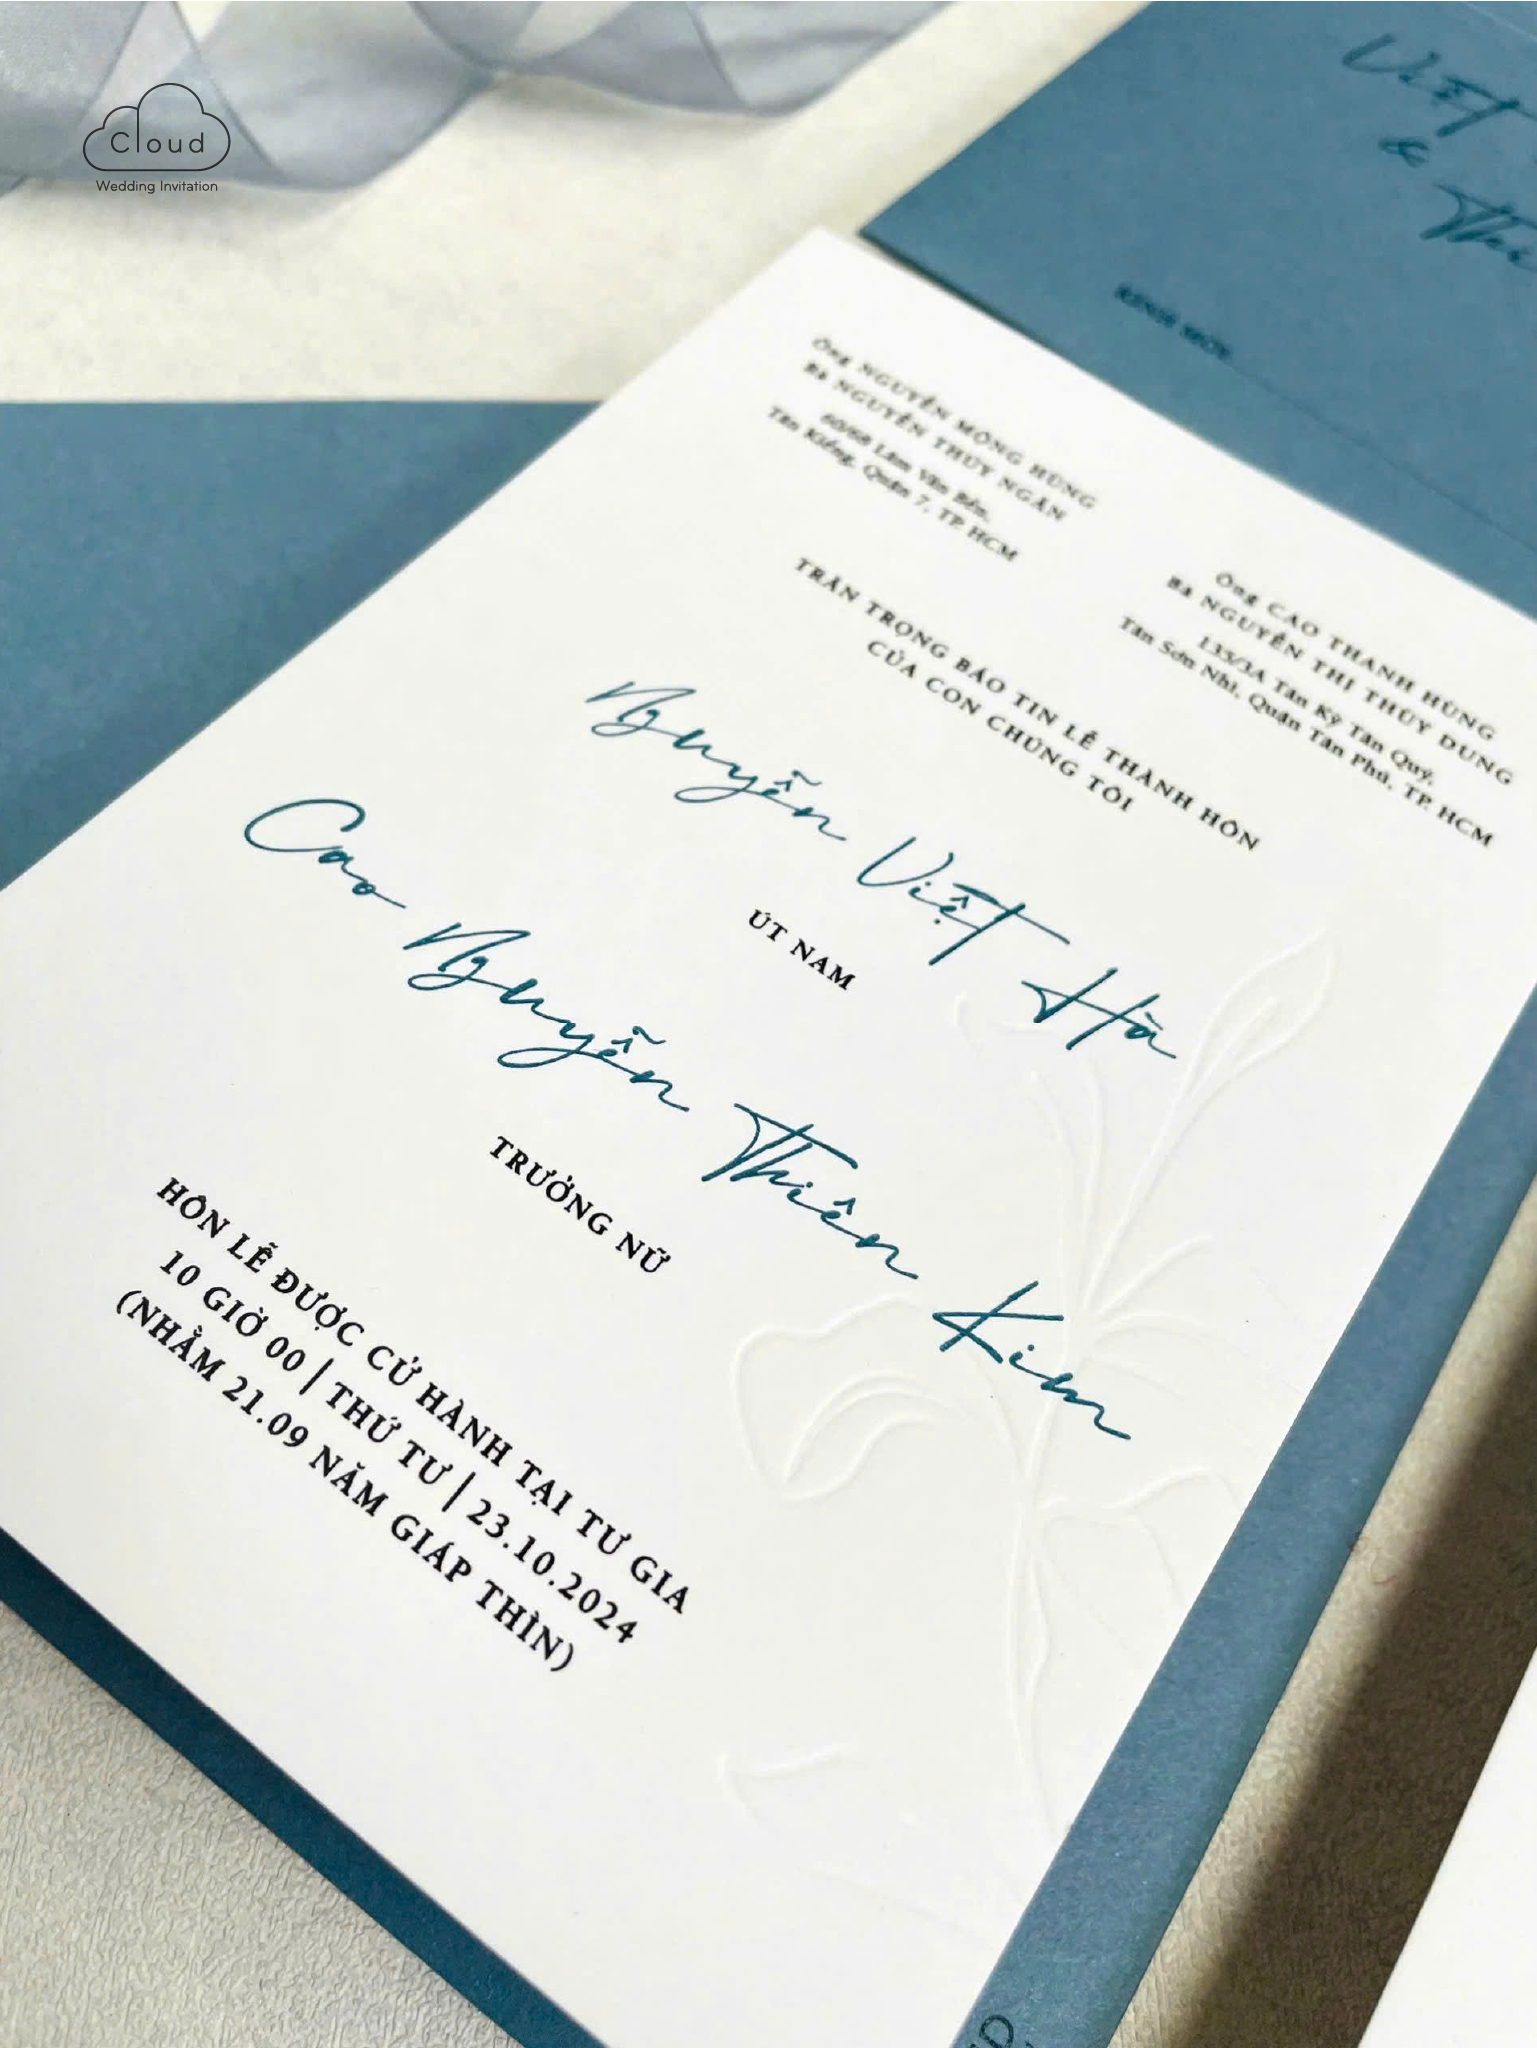 Cloud
Wedding Invitation
Việt
&
KÍNH MỜI
Ông NGUYỄN MỘNG HÙNG
Bà NGUYỄN THÚY NGÂN
60/68 Lâm Văn Bền,
Tân Kiểng, Quận 7, TP. HCM
Ông CAO THANH HÙNG
Bà NGUYỄN THỊ THÙY DUNG
135/3A Tân Kỳ Tân Quý,
Tân Sơn Nhì, Quận Tân Phú, TP. HCM
TRÂN TRỌNG BÁO TIN LỄ THÀNH HÔN
CỦA CON CHÚNG TÔI
Nguyễn Việt Hà
ÚT NAM
Cao Nguyễn Thiên Kim
TRƯỞNG NỮ
HÔN LỄ ĐƯỢC CỬ HÀNH TẠI TƯ GIA
10 GIỜ 00 | THỨ TƯ | 23.10.2024
(NHẰM 21.09 NĂM GIÁP THÌN)